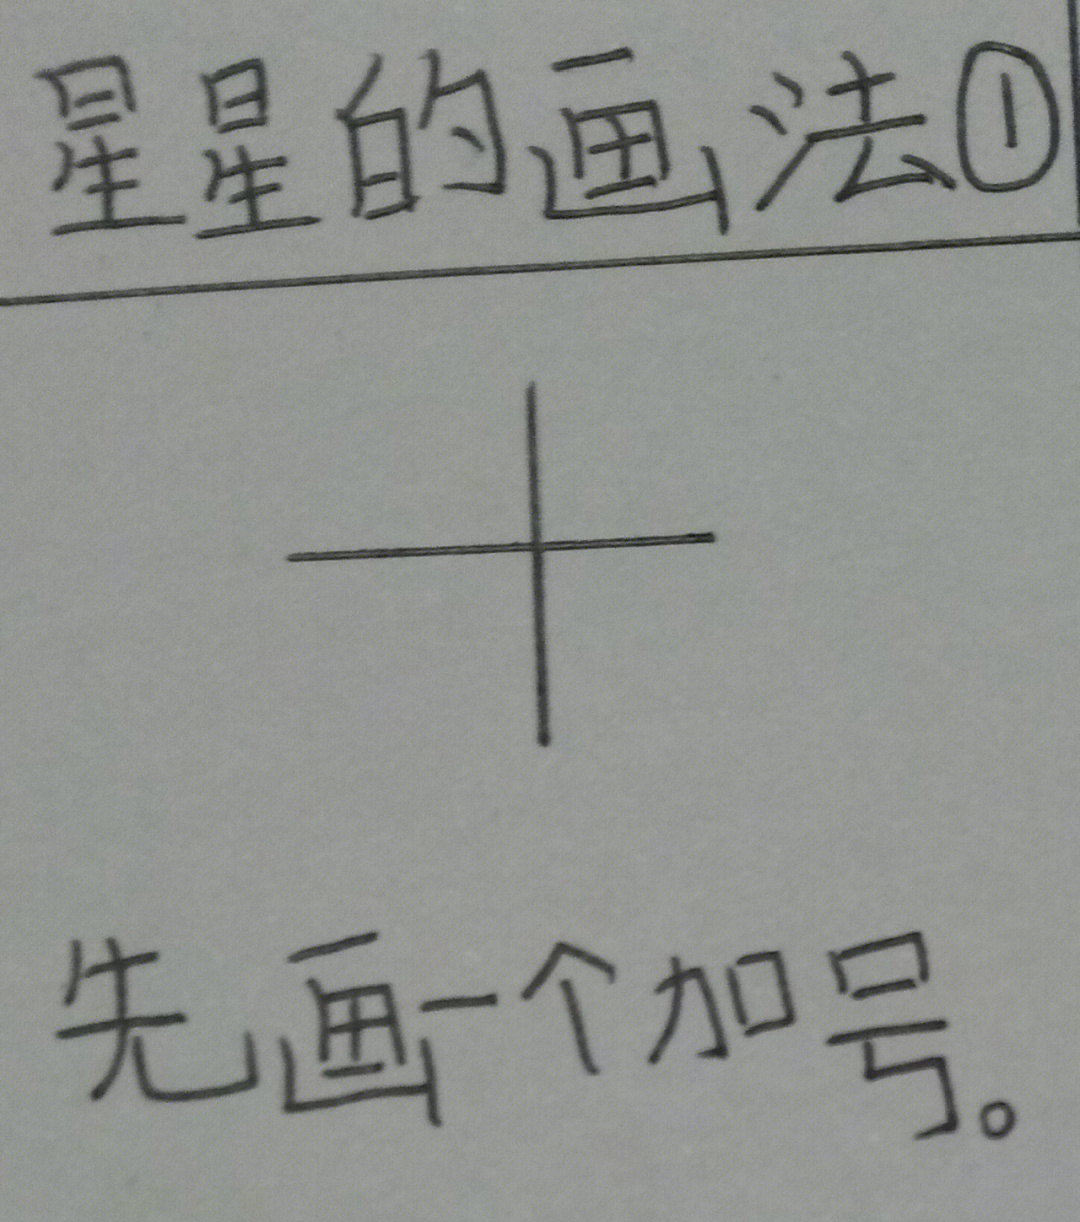 星星的画法①
先画一个加号。